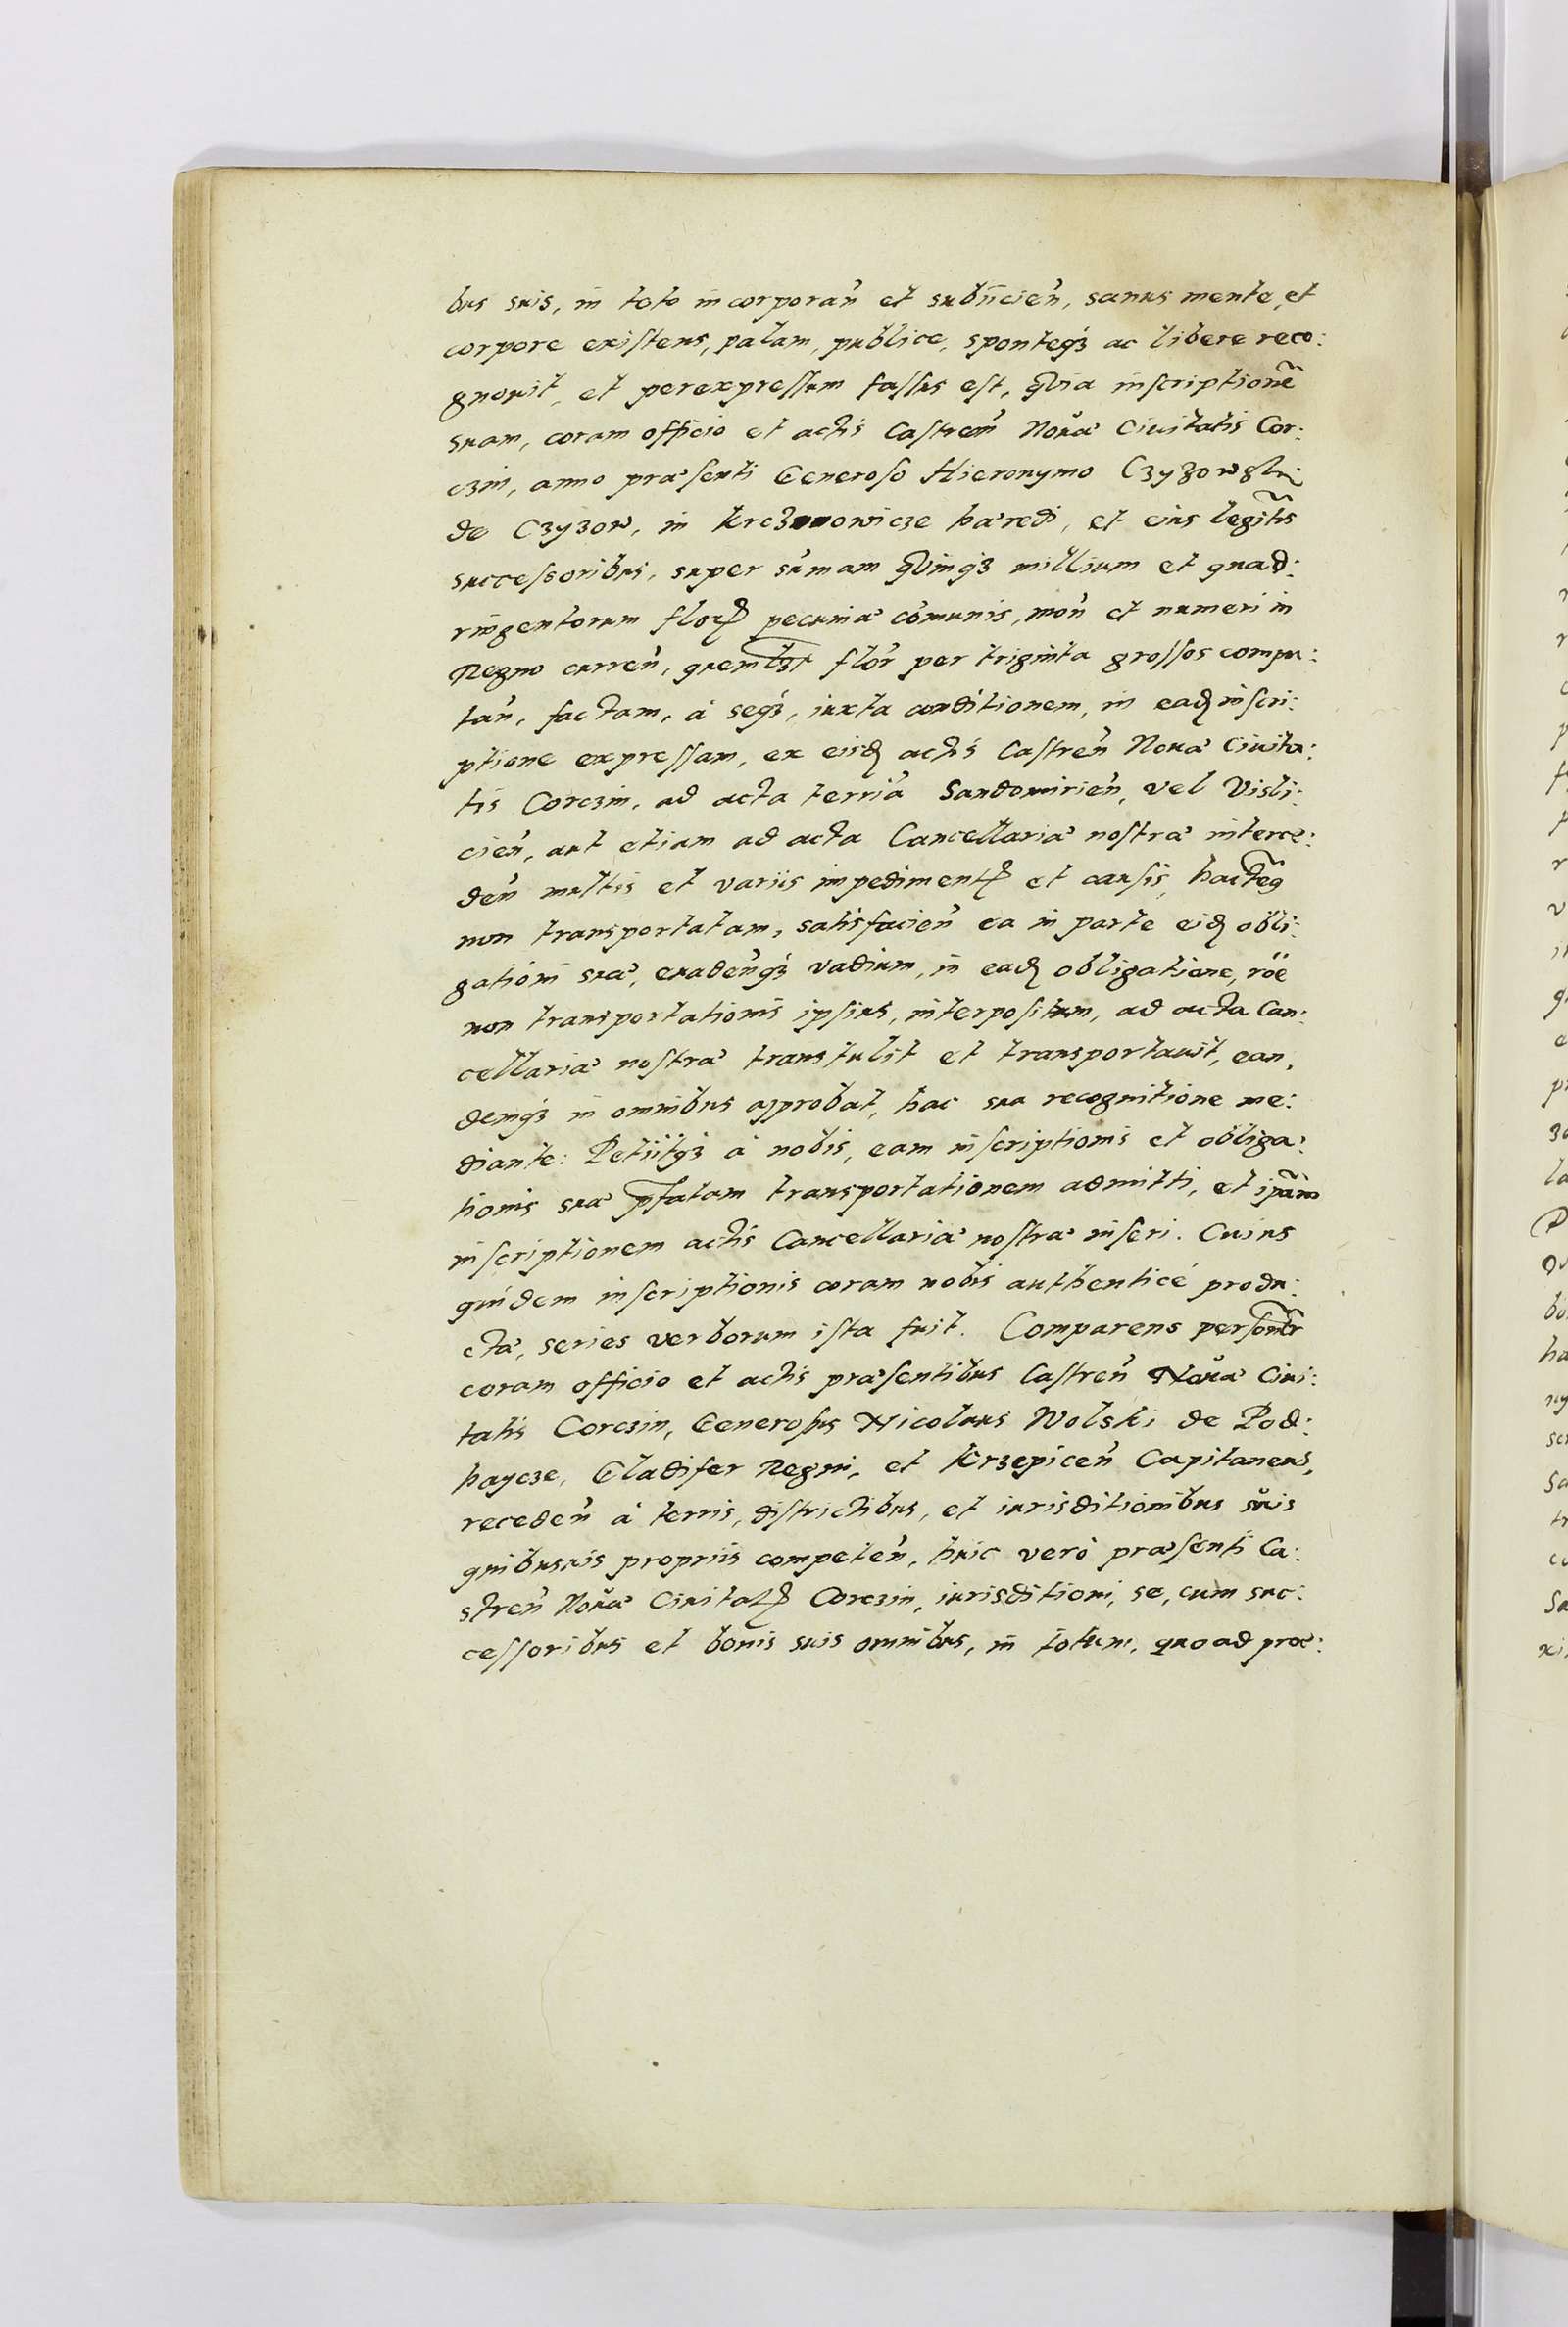 bus suis, in toto incorporan̄ et subiicien̄, sanus mente, et
corpore existens, palam, publice, sponteqȝ ac libere reco:
gnouit, et perexpressum fassus est, Quia inscriptionē
suam, coram officio et actis Castren̄ Nouæ Ciuitatis Cor:
czin, anno præsenti Generoso Hieronymo Czyzowski
de Czyzow, in hæredi, et eius legitīs
successoribus, super sūmam Quinqȝ millium et quad:
ringentorum floꝝ pecuniæ cōmunis, mon̄ et numeri in
Regno curren̄, quemlꝫt flor̄ per triginta grossos compu:
tan̄, factam, à seqȝ, iuxta conditionem, in eaḍ inscri:
ptione expressam, ex eisḍ actis Castren̄ Nouæ Ciuita:
tis Corczin, ad acta terriā Sandomirien̄, vel Visli:
cien̄, aut etiam ad acta Cancellariæ nostræ interce:
den̄ multis et variis impedimentꝭ et causis, hactēq
non transportatam, satisfacien̄ ea in parte eiḍ obli:
gationi suæ, euaden̄qȝ vadium, in eaḍ obligatione, rōe
non transportationis ipsius, interpositum, ad acta Can:
cellariæ nostræ transtulit et transportauit, ean,
demqȝ in omnibus approbat, hac sua recognitione me:
diante: Petiitqȝ à nobis, eam inscriptionis et obliga:
tionis suæ p̄fatam transportationem admitti, et ipām
inscriptionem actis Cancellariæ nostræ inseri. Cuius
quidem inscriptionis coram nobis authenticè produ:
ctæ, series verborum ista fuit. Comparens personlr̄
coram officio et actis præsentibus Castren̄ Nouæ Ciui:
tatis Corczin, Generosus Nicolaus Wolski de Pod:
haycze, Gladifer Regni, et Krzepicen̄ Capitaneus,
receden̄ à terris, districtibus, et iurisditionibus suis
quibusuis propriis competen̄, huic verò præsenti Ca:
stren̄ Nouæ Ciuitatꝭ Corczin, iurisditioni, se, cum suc:
cessoribus et bonis suis omnibus, in totum, quo ad præ: